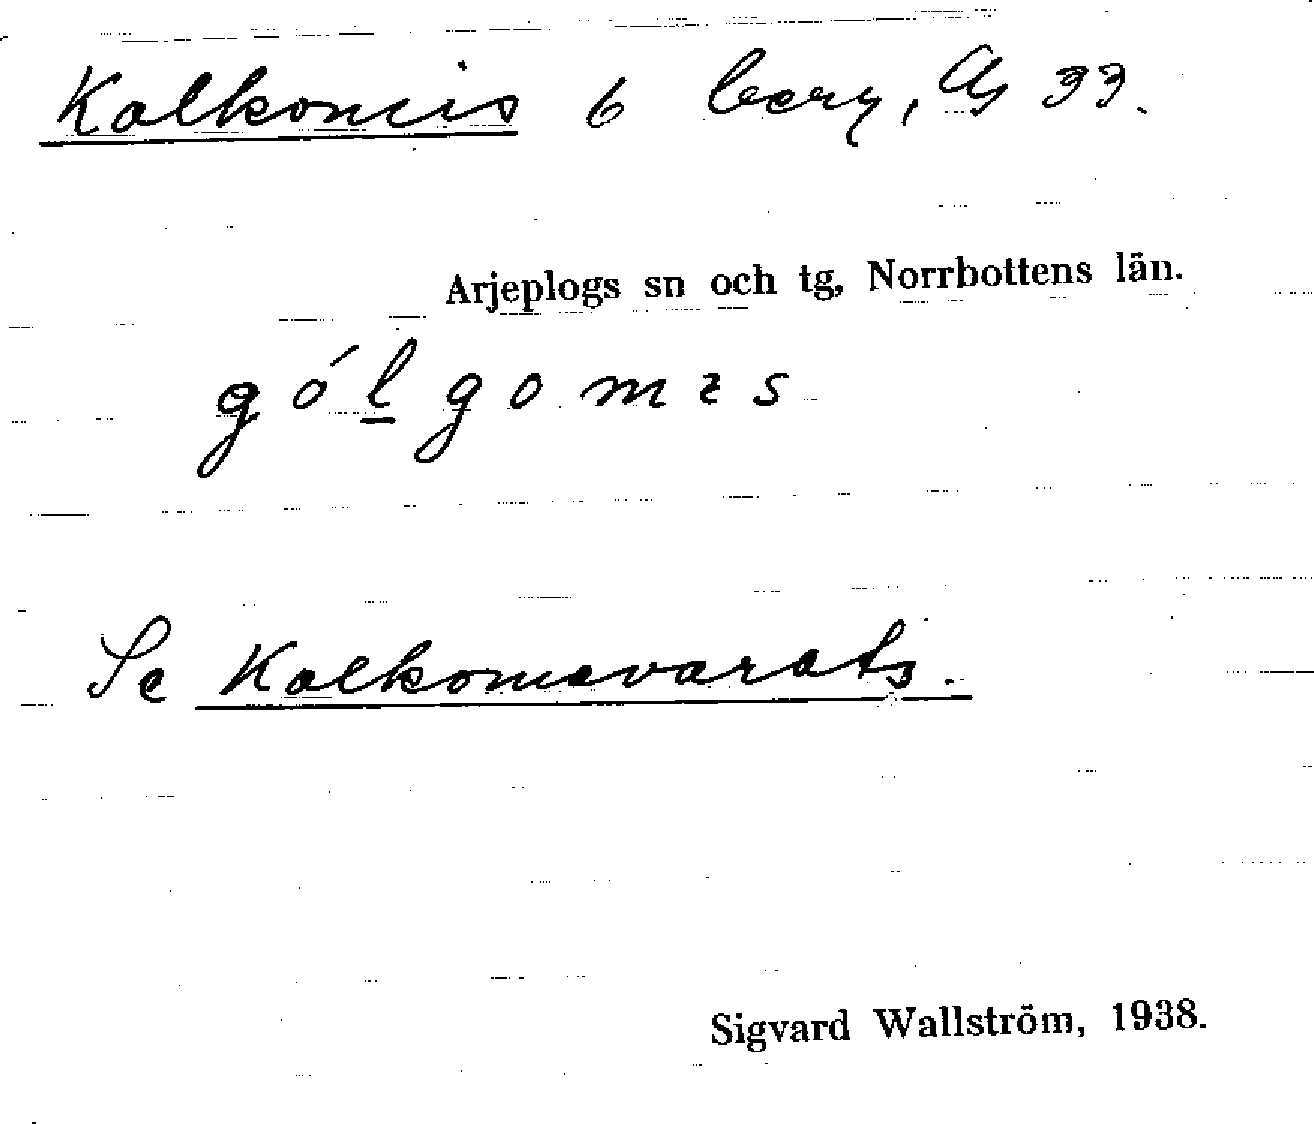 Kalkomis 6 berg, Ag 33.
Arjeplogs sn och tg, Norrbottens län.
gólgomɛs
Se Kalkomavarats.
Sigvard Wallström, 1938.